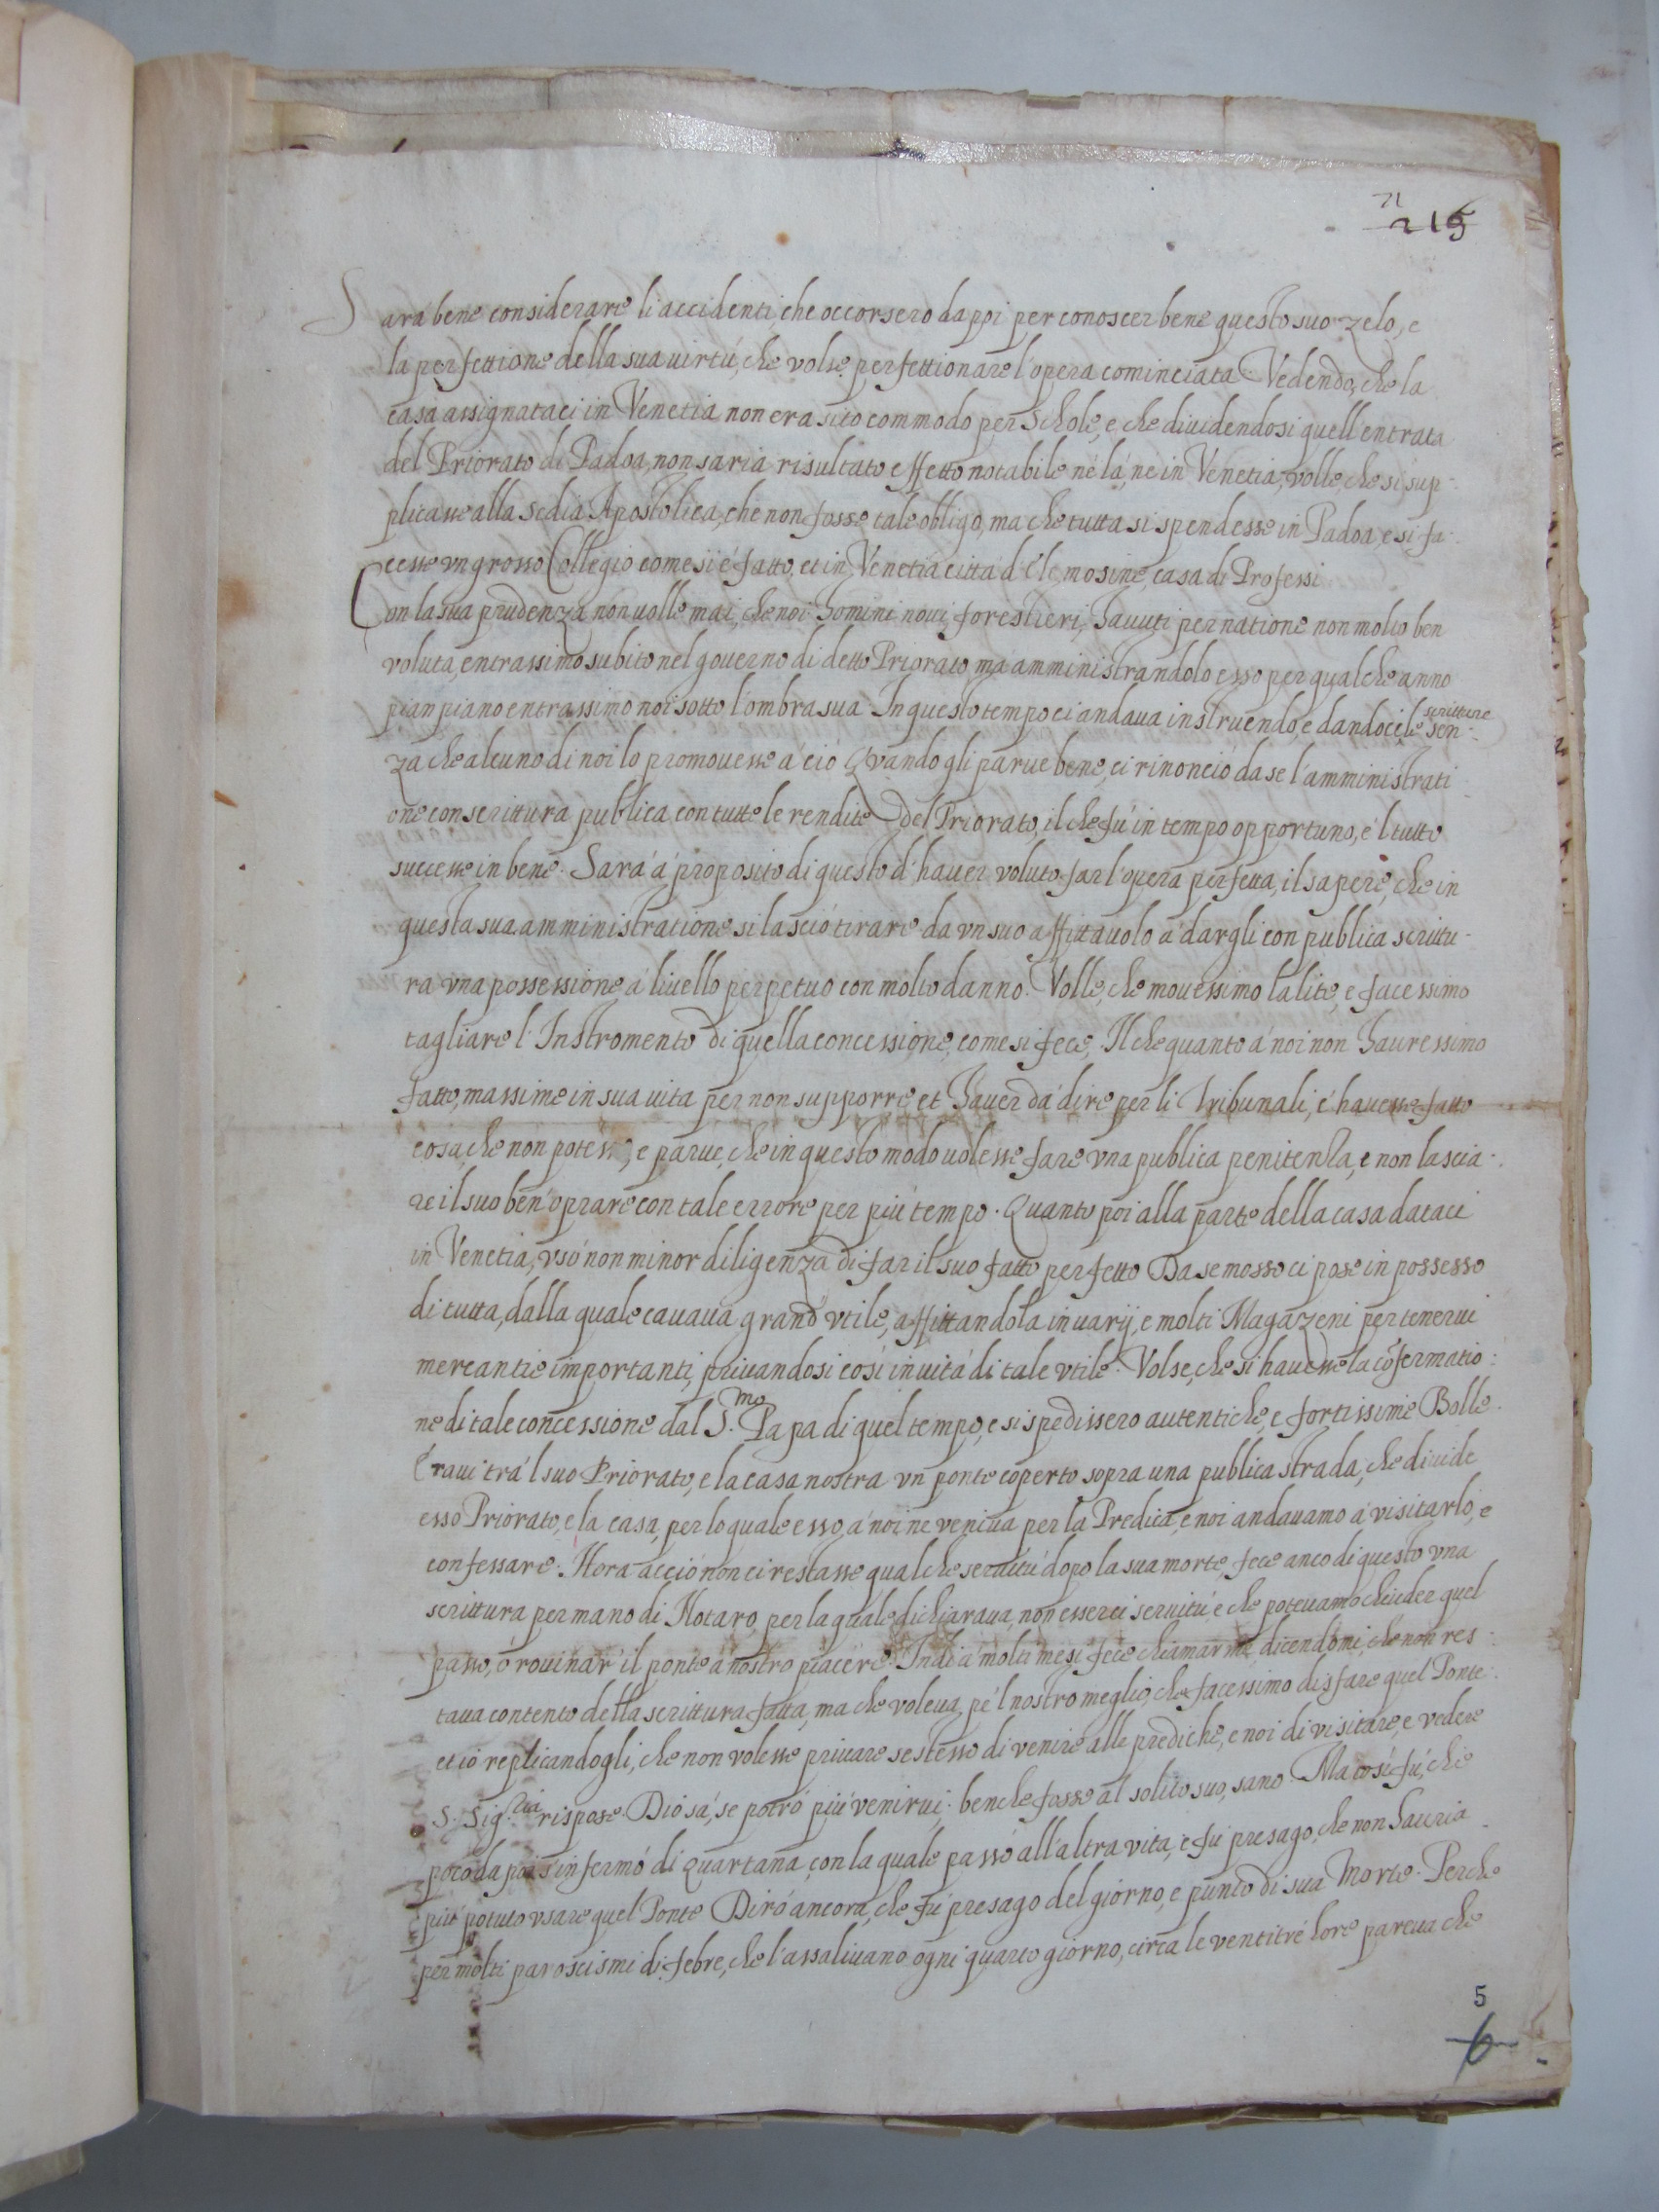 71
215
Sara bene considerare li accidenti, che occorsero da poi per conoscer bene questo suo zelo, e
la perfettione della sua uirtù, che volse perfettionare l'opera cominciata. Vedendo, che la
casa assignataci in Venetia non era sito commodo per Schole, e che diuidendosi quell'entrata
del Priorato di Padoa, non saria risultato effetto notabile né là, ne in Venetia, volle, che si sup-
plicasse alla Sedia Apostolica, che non fosse tale obligo, ma che tutta si spendesse in Padoa, e si fa-
cesse vn grosso Collegio come si é fatto, et in Venetia città d'elemosine, casa di Professi
Con la sua prudenza non uolle mai, che noi homini noui, forestieri, hauuti per natione non molto ben
voluta, entrassimo subito nel gouerno di detto Priorato, ma amministrandolo esso per qualche anno
pian piano entrassimo noi sotto l'ombra sua. In questo tempo ci andaua instruendo, e dandoci le scritture sen-
za che alcuno di noi lo promouesse á ció. Quando gli parue bene, ci rinoncio da se l'amministrati-
one con scrittura publica con tutte le rendite del Priorato, il che fú in tempo opportuno, e 'l tutto
successe in bene. Sará á proposito di questo d'hauer voluto far l'opera perfetta, il sapere, che in
questa sua amministratione si lasció tirare da vn suo affittauolo á dargli con publica scrittu-
ra vna possessione á liuello perpetuo con molto danno. Volle, che mouessimo la lite, e facessimo
tagliare l'Instromento di quella concessione, come si fece, Il che quanto á noi non hauressimo
fatto, massime in sua uita per non supporre et hauer da dire per li Tribunali, é hauesse fatto
cosa, che non potesse, e parue, che in questo modo uolesse fare vna publica penitenza, e non lascia-
re il suo ben'oprare con tale errore per piú tempo. Quanto poi alla parte della casa dataci
in Venetia, vsó non minor diligenza di far il suo fatto perfetto. Da se mosso ci pose in possesso
di tutta, dalla quale cauaua grand'vtile, affittandola in uarij, e molti Magazeni per tenerui
mercantie importanti, priuandosi cosí in uita di tale vtile. Volse, che si hauesse la cõfermatio-
ne di tale concessione dal S.mo Papa di quel tempo, e si spedissero autentiche, e fortissime Bolle.
Éraui trá 'l suo Priorato, e la casa nostra vn ponte coperto sopra una publica strada, che diuide
esso Priorato, e la casa, per lo quale esso á noi ne veniua per la Predica, e noi andauamo á visitarlo, e
confessare. Hora acció non ci restasse qualche seruitú dopo la sua morte, fece anco di questo vna
scrittura per mano di Notaro, per la quale dichiaraua, non esserci seruitú, e che poteuamo chiuder quel
passo, ó rouinar il ponte á nostro piacere. Indi á molti mesi fece chiamarmi, dicendomi, che non res-
taua contento della scrittura fatta, ma che voleua, pe 'l nostro meglio, che facessimo disfare quel Ponte.
et io replicandogli, che non volesse priuare se stesso di venire alle prediche, e noi di visitare, e vedere
S. Sig.ria rispose. Dio sá, se potró piú venirui. benche fosse al solito suo, sano. Ma cosí fú, che
poco da poi s'infermó di quartana, con la quale passó all'altra vita, e fú presago, che non hauria
piú potuto vsare quel Ponte. Diró ancora, che fú presago del giorno, e punto di sua Morte. Perche
per molti paroscismi di febre, che l'assaliuano ogni quarto giorno, circa le ventitré hore pareua che
5
6